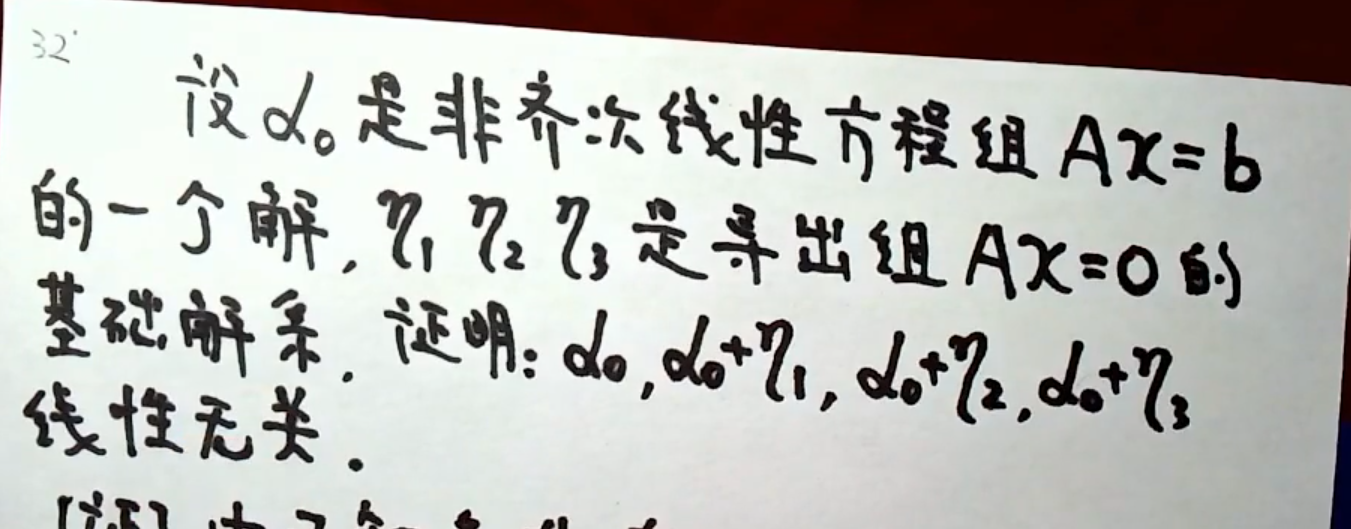 32.
设α₀是非齐次线性方程组Ax=b
的一个解,η₁ η₂ η₃是导出组Ax=0的
基础解系.证明:α₀,α₀+η₁,α₀+η₂,α₀+η₃
线性无关.
[证]